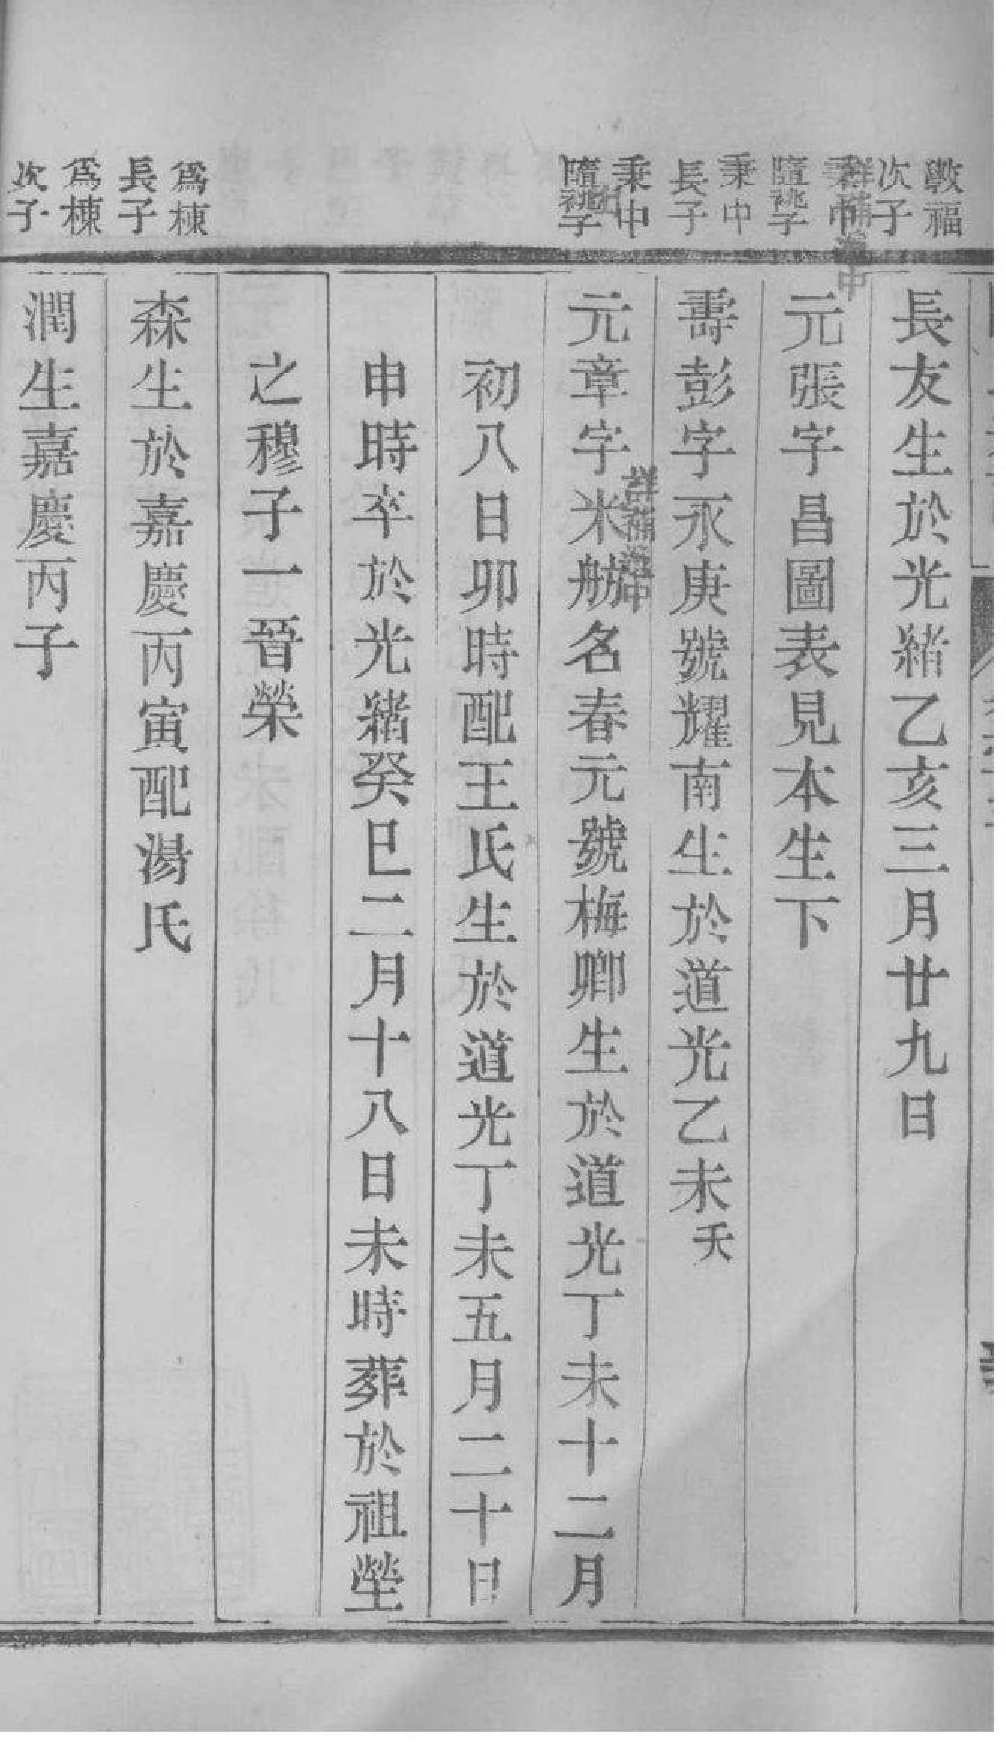 敦福
次子
長友生於光緒乙亥三月廿九日
秉中
隨祧子
元張字昌圖表見本生下
秉中
長子
壽彭字永庚號耀南生於道光乙未夭
秉中
隨祧子
元章字米舫名春元號梅卿生於道光丁未十二月
初八日卯時配王氏生於道光丁未五月二十日
申時卒於光緒癸巳二月十八日未時葬於祖塋
之穆子一晉榮
爲棟
長子
森生於嘉慶丙寅配湯氏
爲棟
次子
潤生嘉慶丙子